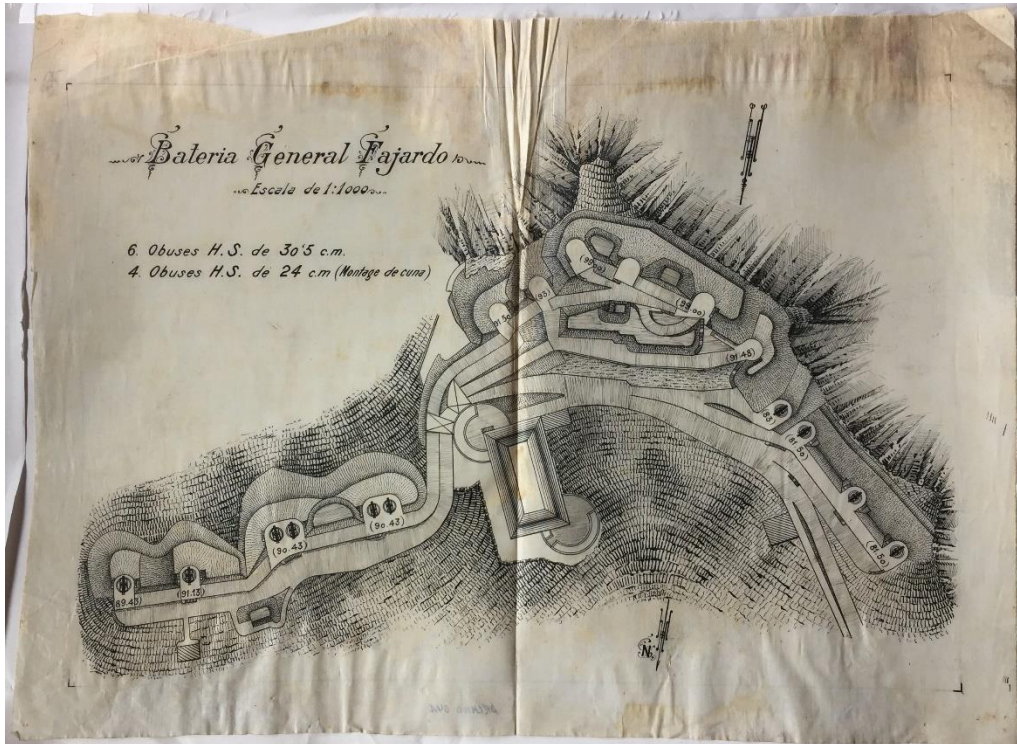 Bateria General Fajardo
Escala de 1:1000
6. Obuses H.S. de 30'5 c.m.
4. Obuses H.S. de 24 c.m (Montage de cuna)
(99.00)
91.50
(91.48)
(81.50)
(81.50)
(90.43)
(90.43)
(91.13)
89.43
N